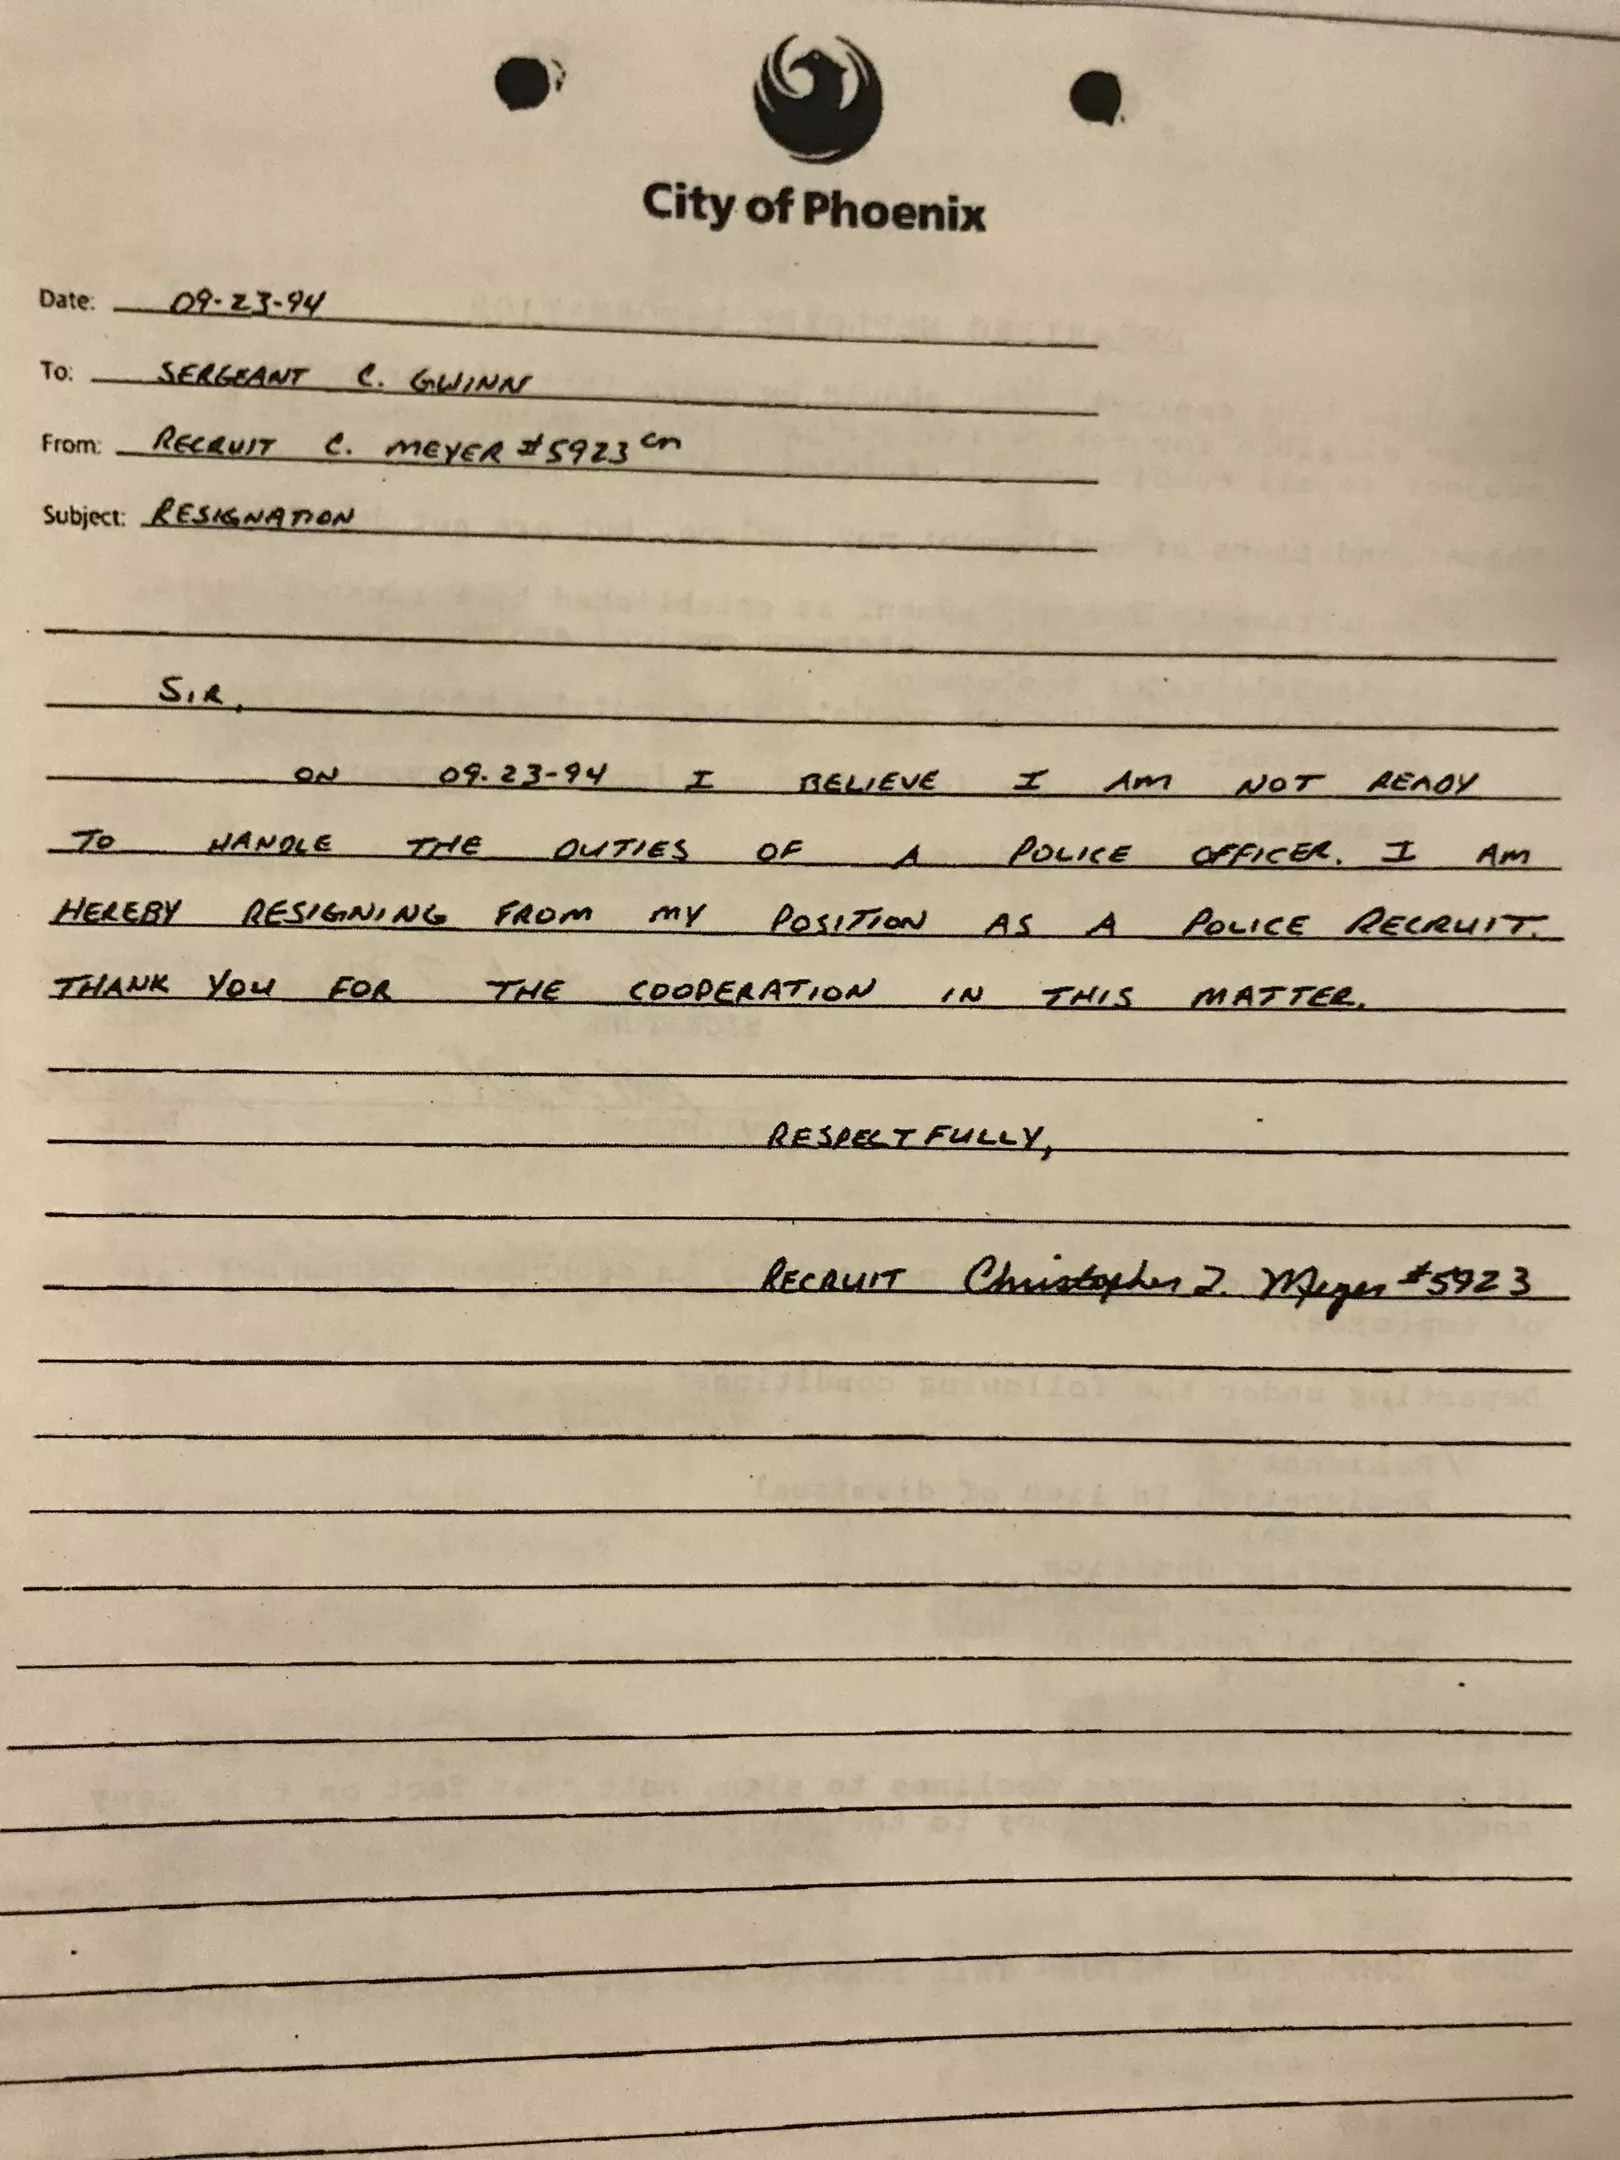 City of Phoenix
Date: 09-23-94
To: SERGEANT C. GWINN
From: RECRUIT C. MEYER #5923 cm
Subject: RESIGNATION
SIR,
ON 09-23-94 I BELIEVE I AM NOT READY
TO HANDLE THE DUTIES OF A POLICE OFFICER. I AM
HEREBY RESIGNING FROM MY POSITION AS A POLICE RECRUIT.
THANK YOU FOR THE COOPERATION IN THIS MATTER.
RESPECTFULLY,
RECRUIT Christopher J. Meyer #5923